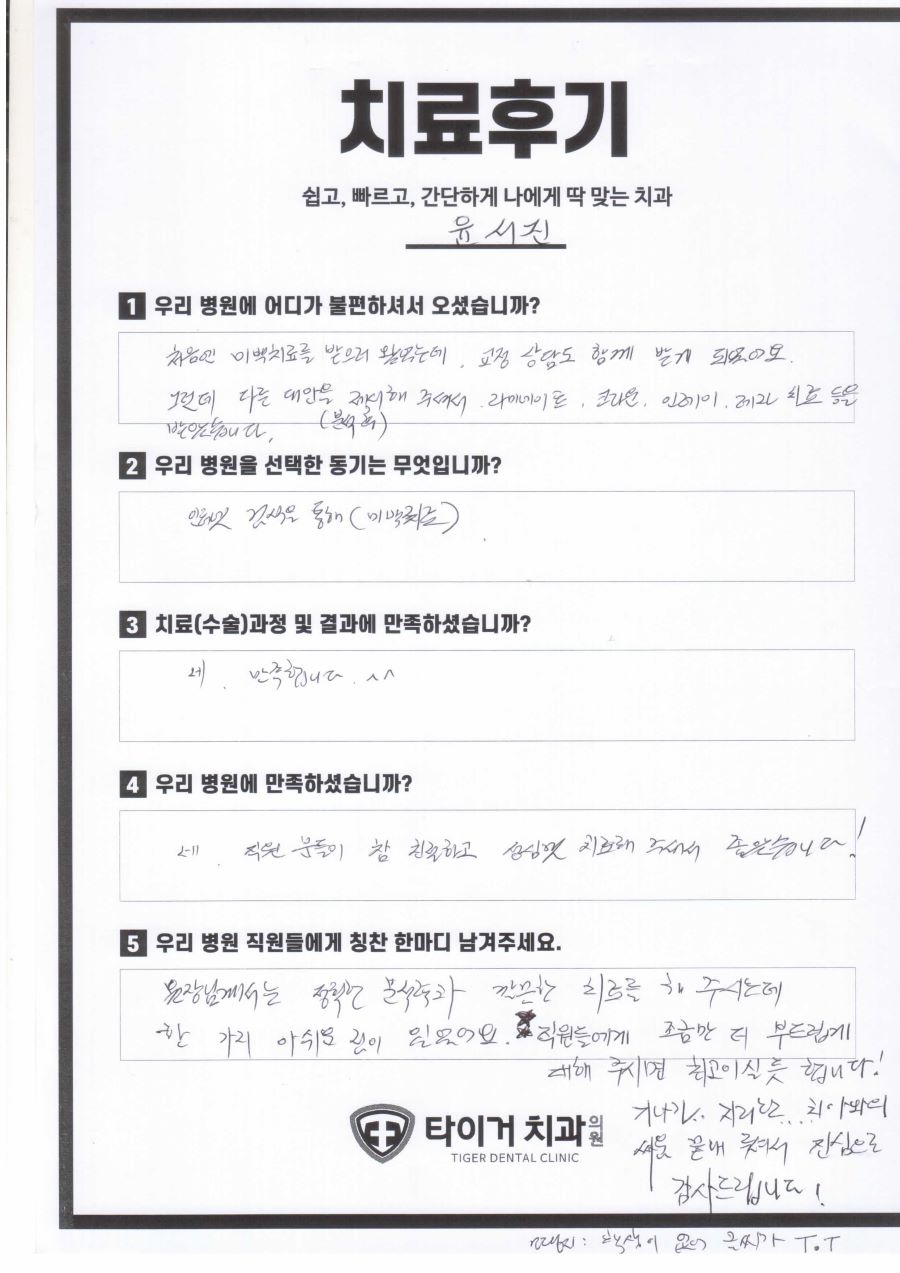 치료후기
쉽고, 빠르고, 간단하게 나에게 딱 맞는 치과
윤서진
1 우리 병원에 어디가 불편하셔서 오셨습니까?
처음엔 미백치료를 받으러 왔었는데, 교정 상담도 함께 받게 되었어요.
그런데 다른 대안을 제시해 주셔서 라미네이트, 크라운, 인레이, 레진 치료 등을
받았습니다. (분석 후)
2 우리 병원을 선택한 동기는 무엇입니까?
인터넷 검색을 통해 (미백치료)
3 치료(수술)과정 및 결과에 만족하셨습니까?
네. 만족합니다. ^^
4 우리 병원에 만족하셨습니까?
네. 직원 분들이 참 친절하고 성심껏 치료해 주셔서 좋았습니다!
5 우리 병원 직원들에게 칭찬 한마디 남겨주세요.
원장님께서는 정확한 분석력과 깔끔한 치료를 해 주시는데
한 가지 아쉬운 점이 있었어요. 직원들에게 조금만 더 부드럽게
대해 주시면 최고이실 듯 합니다!
거나긴.. 지리한... 치아와의
싸움 끝내 주셔서 진심으로
감사드립니다!
타이거 치과의원
TIGER DENTAL CLINIC
책상이 없어 글씨가 T.T